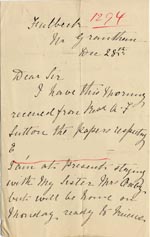 Fulbeck 1274
Nr Grantham
Dec 28th
Dear Sir
I have this morning
received from Messrs A. J.
Sutton the papers respecting
E
I am at present staying
with my Sister Mrs
but will be home on
Monday, ready to